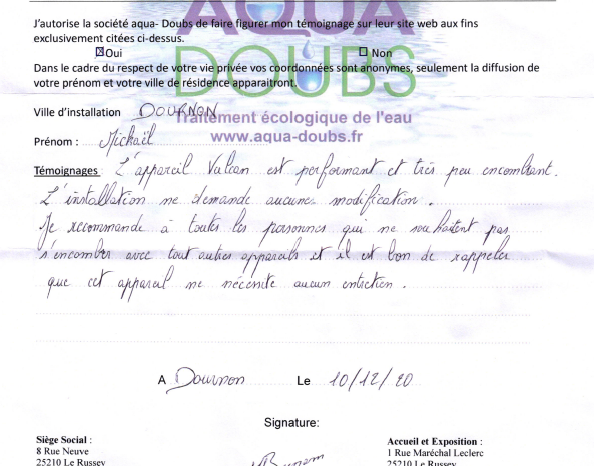 AQUA
J'autorise la société aqua- Doubs de faire figurer mon témoignage sur leur site web aux fins
exclusivement citées ci-dessus.
☒Oui ☐ Non
DOUBS
Dans le cadre du respect de votre vie privée vos coordonnées sont anonymes, seulement la diffusion de
votre prénom et votre ville de résidence apparaitront.
Ville d'installation DOURNON
Traitement écologique de l'eau
www.aqua-doubs.fr
Prénom : Mickaël
Témoignages : L'appareil Vulcan est performant et très peu encombrant.
L'installation ne demande aucunes modification.
Je recommande à toutes les personnes qui ne souhaitent pas
s'encombrer avec tout autres appareils et il est bon de rappeler
que cet appareil ne nécésite aucun entretien.
A Dournon Le 10/12/20
Signature:
Siège Social :
8 Rue Neuve
25210 Le Russey
Accueil et Exposition :
1 Rue Maréchal Leclerc
25210 Le Russey